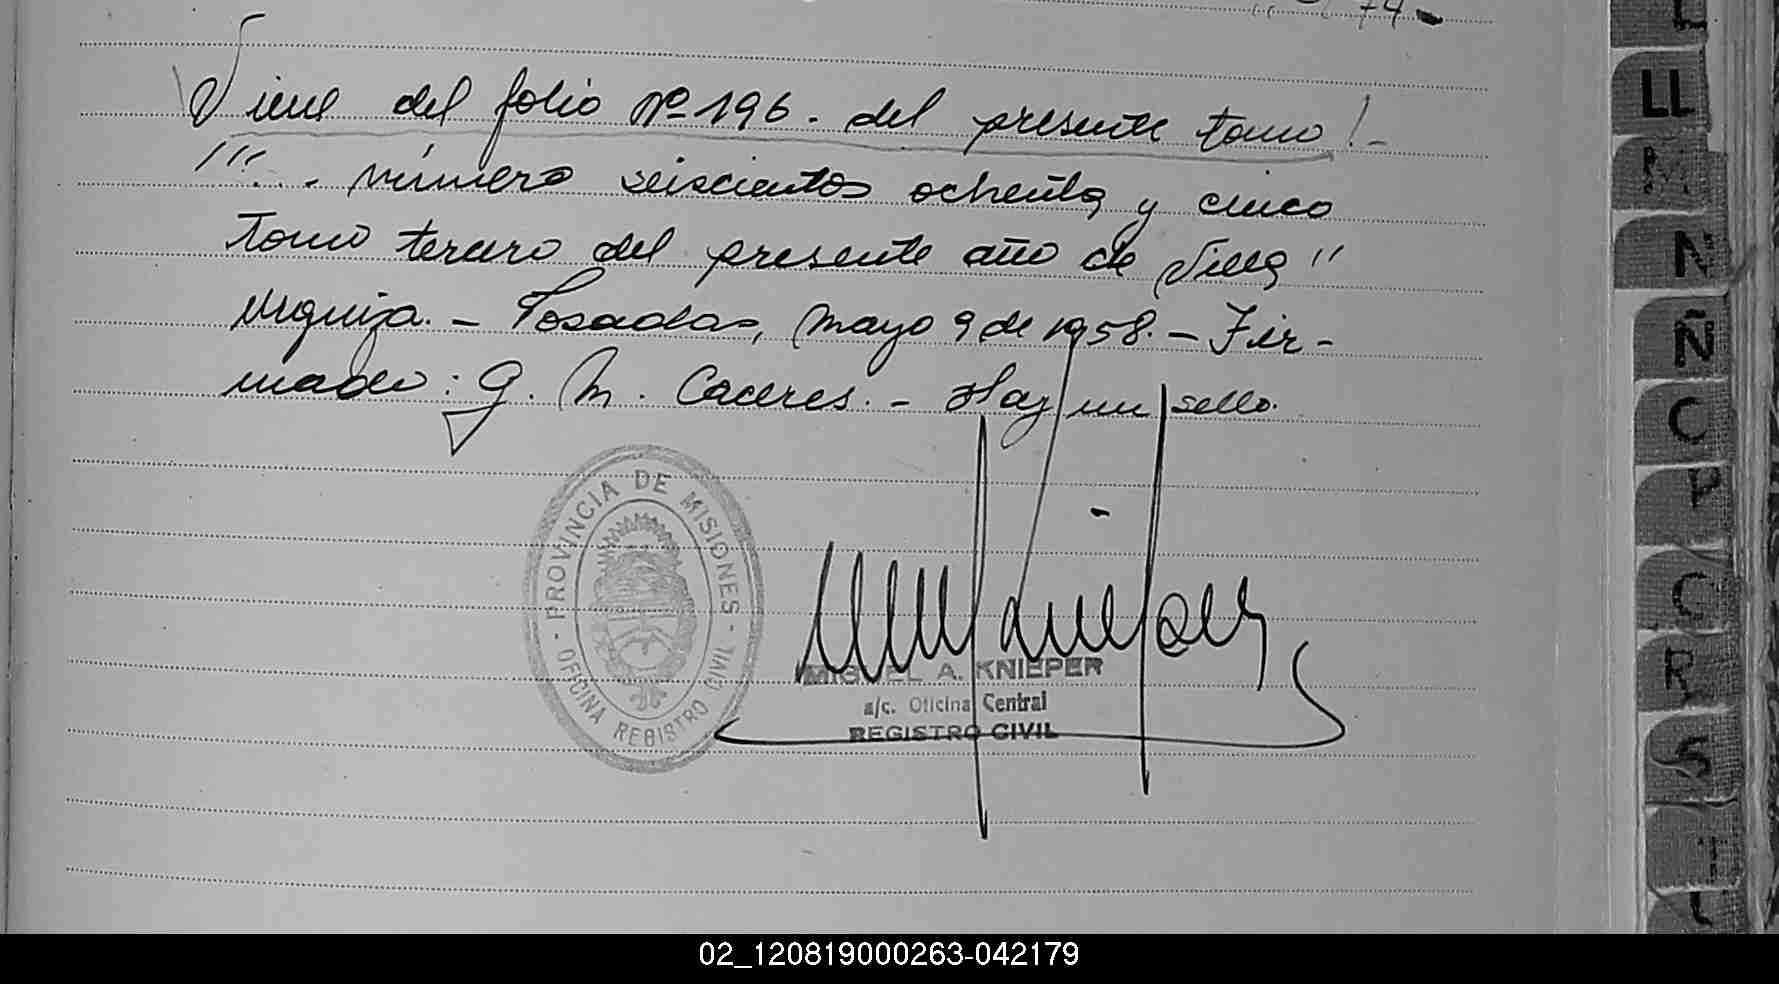 74.-
Viene del folio Nº 196. del presente tomo!-
'''... número seiscientos ochenta y cinco
Tomo tercero del presente año de Villa "
Urquiza.- Posadas, Mayo 9 de 1958.- Fir-
mado: G. M. Caceres.- Hay un sello.
PROVINCIA DE MISIONES
OFICINA REGISTRO CIVIL
MIGUEL A. KNIEPER
a/c. Oficina Central
REGISTRO CIVIL
L
LL
M
N
Ñ
O
P
Q
R
S
T
02_120819000263-042179